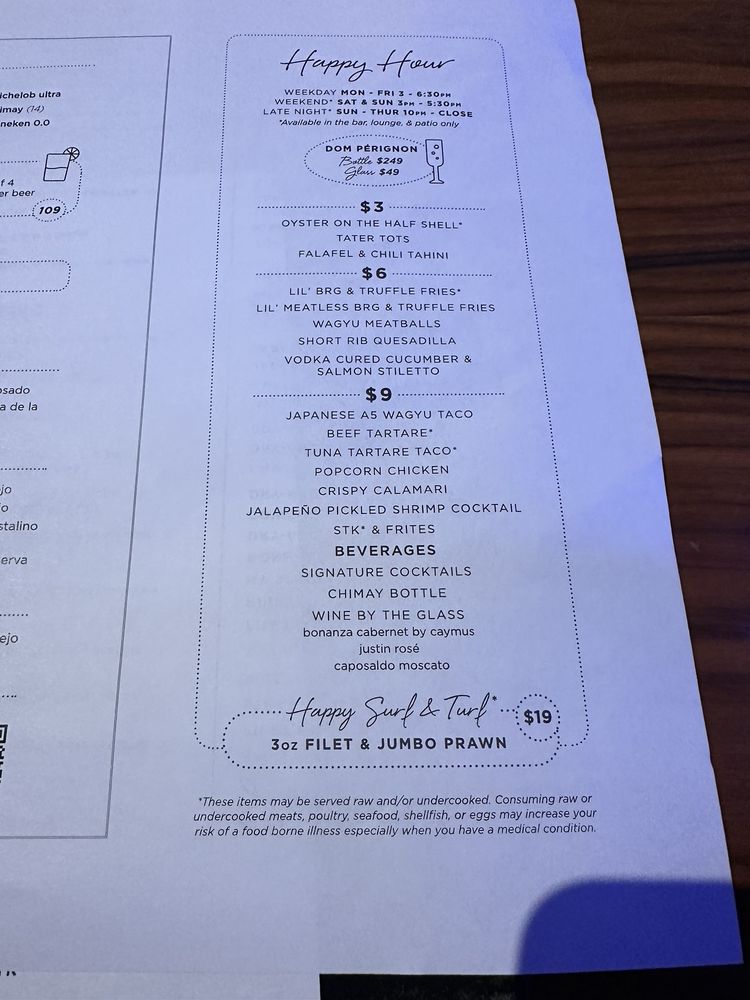 ichelob ultra
imay (14)
neken 0.0
f 4
er beer
109
osado
a de la
jo
o
stalino
erva
ejo
Happy Hour
WEEKDAY MON - FRI 3 - 6:30PM
WEEKEND* SAT & SUN 3PM - 5:30PM
LATE NIGHT* SUN - THUR 10PM - CLOSE
*Available in the bar, lounge, & patio only
DOM PÉRIGNON
Bottle $249
Glass $49
$3
OYSTER ON THE HALF SHELL*
TATER TOTS
FALAFEL & CHILI TAHINI
$6
LIL' BRG & TRUFFLE FRIES*
LIL' MEATLESS BRG & TRUFFLE FRIES
WAGYU MEATBALLS
SHORT RIB QUESADILLA
VODKA CURED CUCUMBER &
SALMON STILETTO
$9
JAPANESE A5 WAGYU TACO
BEEF TARTARE*
TUNA TARTARE TACO*
POPCORN CHICKEN
CRISPY CALAMARI
JALAPEÑO PICKLED SHRIMP COCKTAIL
STK* & FRITES
BEVERAGES
SIGNATURE COCKTAILS
CHIMAY BOTTLE
WINE BY THE GLASS
bonanza cabernet by caymus
justin rosé
caposaldo moscato
Happy Surf & Turf* $19
3oz FILET & JUMBO PRAWN
*These items may be served raw and/or undercooked. Consuming raw or
undercooked meats, poultry, seafood, shellfish, or eggs may increase your
risk of a food borne illness especially when you have a medical condition.